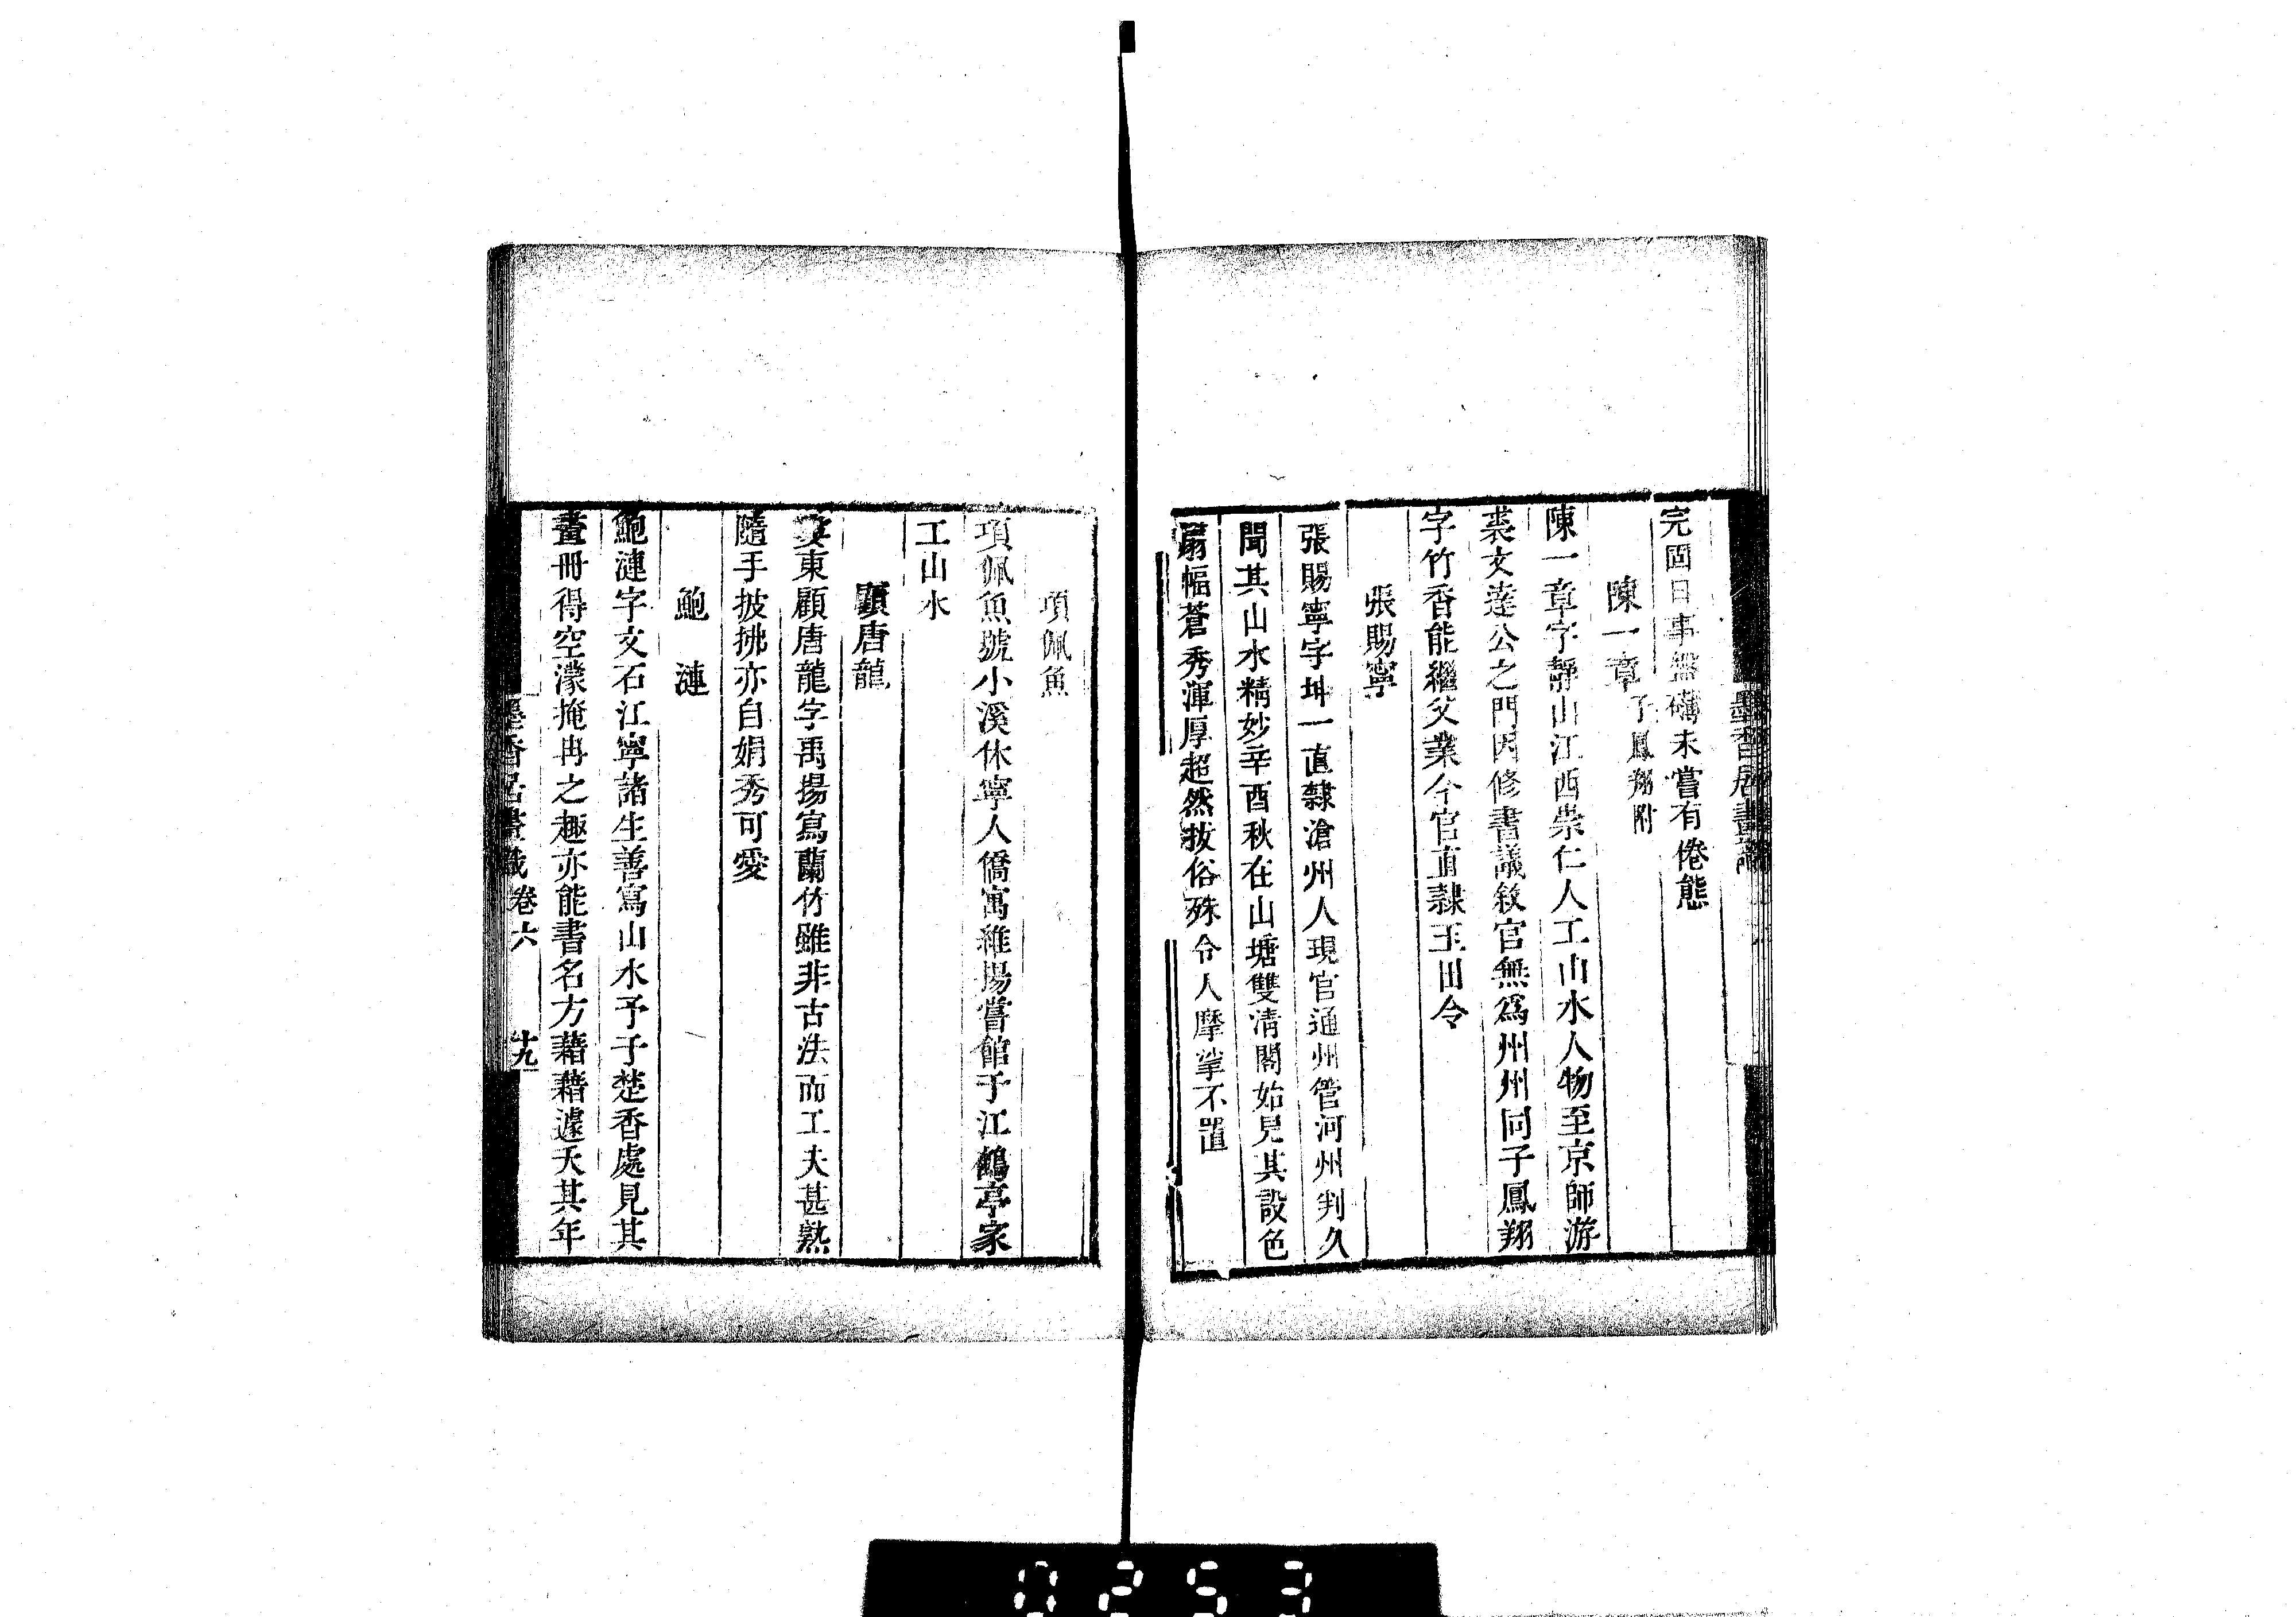 完固日事盤礴未嘗有倦態
陳一章子鳳翔附
陳一章字靜山江西崇仁人工山水人物至京師游
裘文達公之門因修書議敘官無爲州州同子鳳翔
字竹香能繼父業今官直隸玉田令
張賜寧
張賜寧字坤一直隸滄州人現官通州管河州判久
聞其山水精妙辛酉秋在山塘雙清閣始見其設色
扇幅蒼秀渾厚超然拔俗殊令人摩挲不置
項佩魚
項佩魚號小溪休寧人僑寓維揚嘗館于江鶴亭家
工山水
顧唐龍
婁東顧唐龍字禹揚寫蘭竹雖非古法而工夫甚熟
隨手披拂亦自娟秀可愛
鮑漣
鮑漣字文石江寧諸生善寫山水予于楚香處見其
畫冊得空濛掩冉之趣亦能書名方藉藉遽夭其年
墨香居畫識 卷六 十九
0253